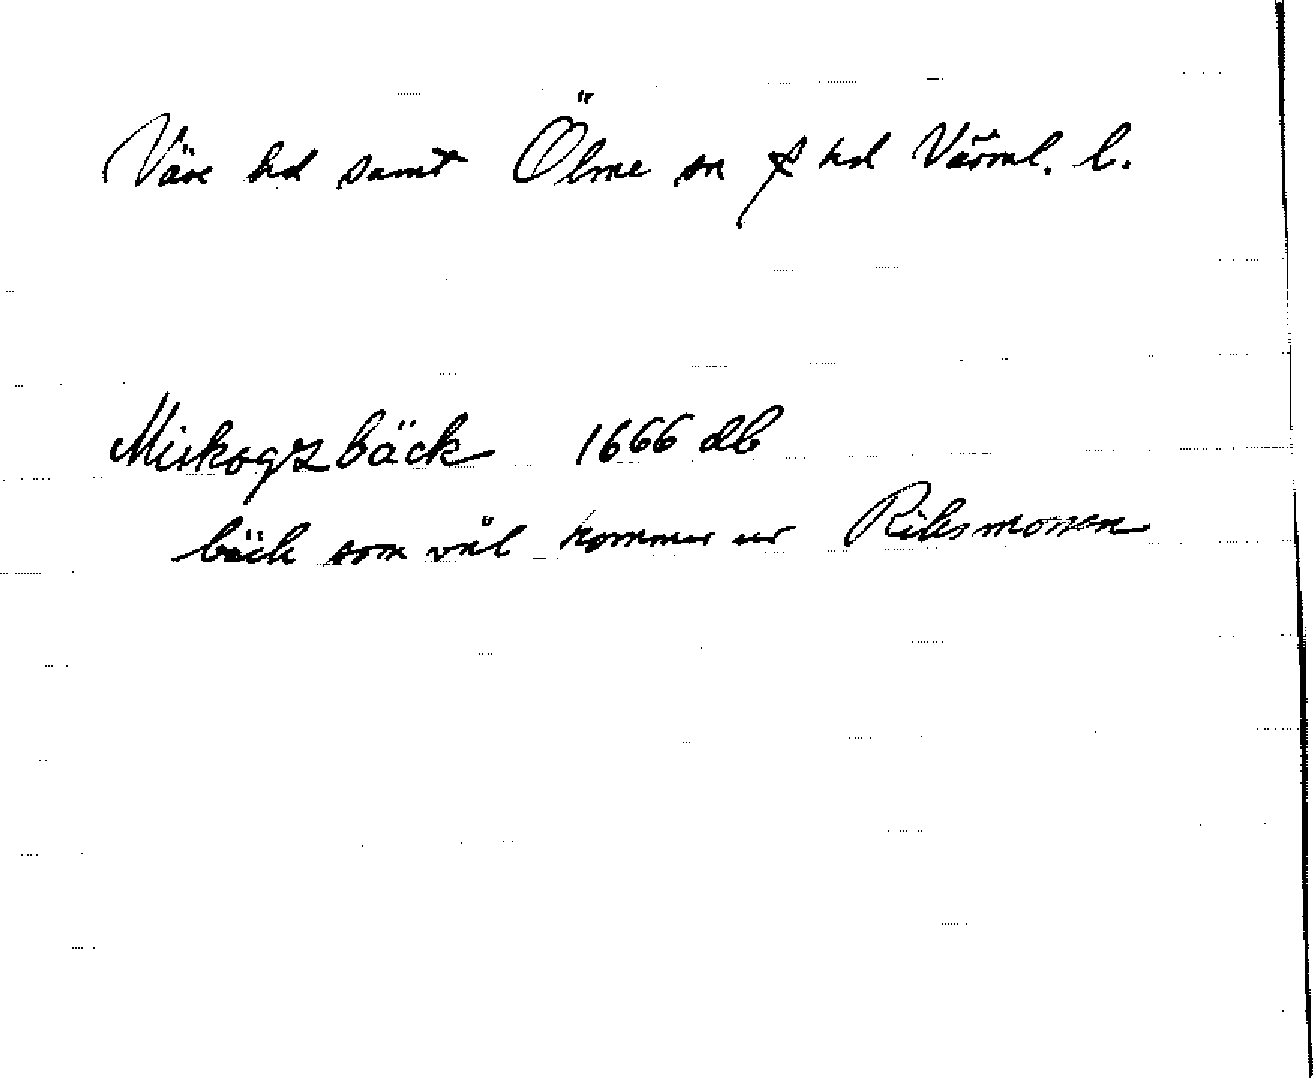 Väse hd samt Ölme sn & hd Värml. l.
Miskogzbäck 1666 db
bäck som väl kommer ur Riksmossen